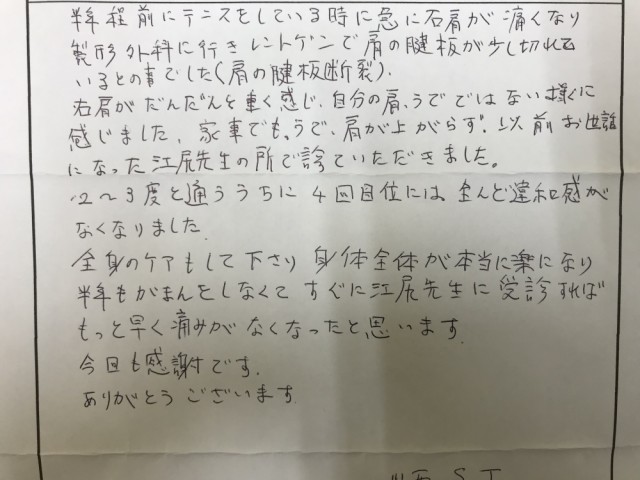 半年程前にテニスをしている時に急に右肩が痛くなり
整形外科に行きレントゲンで肩の腱板が少し切れて
いるとの事でした(肩の腱板断裂).
右肩がだんだんと重く感じ、自分の肩、うでではない様に
感じました。家事でも、うで、肩が上がらず、以前お世話
になった江尻先生の所で診ていただきました。
2～3度と通ううちに4回目位には、全んど違和感が
なくなりました.
全身のケアもして下さり身体全体が本当に楽になり
半年もがまんをしなくてすぐに江尻先生に受診すれば
もっと早く痛みがなくなったと思います.
今回も感謝です.
ありがとうございます.
S.T